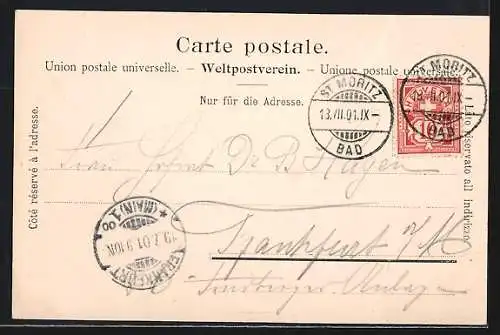 Carte postale.
Union postale universelle. – Weltpostverein. – Unione postale universale.
Nur für die Adresse.
Côté réservé à l'adresse.
Lato riservato all indirizzo
ST MORITZ
13.VII.01.IX-
BAD
ST MORITZ
13.VII.01.IX
BAD
10
Frau Dr B Hagen
Frankfurt a/M
Anlage
FRANKFURT
(MAIN) 1